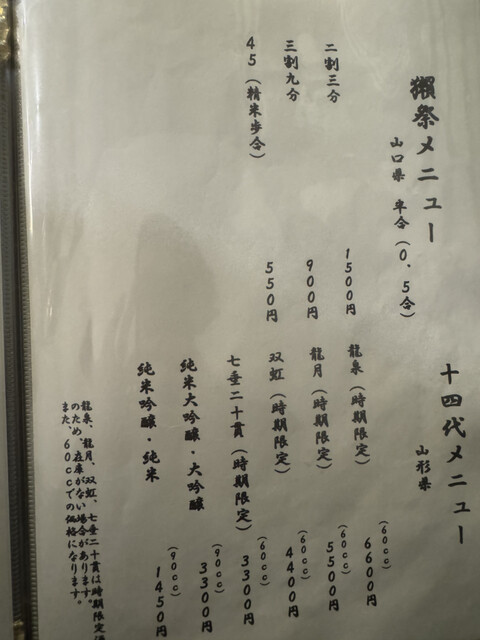 獺祭メニュー
山口県 半合(0.5合)
二割三分 1500円
三割九分 900円
45(精米歩合) 550円
十四代メニュー
山形県
龍泉(時期限定) (60cc) 6600円
龍月(時期限定) (60cc) 5500円
双虹(時期限定) (60cc) 4400円
七垂二十貫(時期限定) (60cc) 3300円
純米大吟醸・大吟醸 (90cc) 3300円
純米吟醸・純米 (90cc) 1450円
龍泉、龍月、双虹、七垂二十貫は時期限定
のため、在庫がない場合があります。
また、60ccでの価格になります。